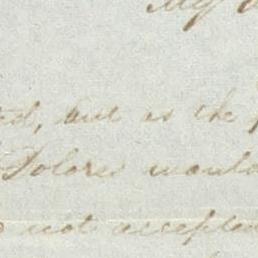 My
but as the
Dolores would
not accept